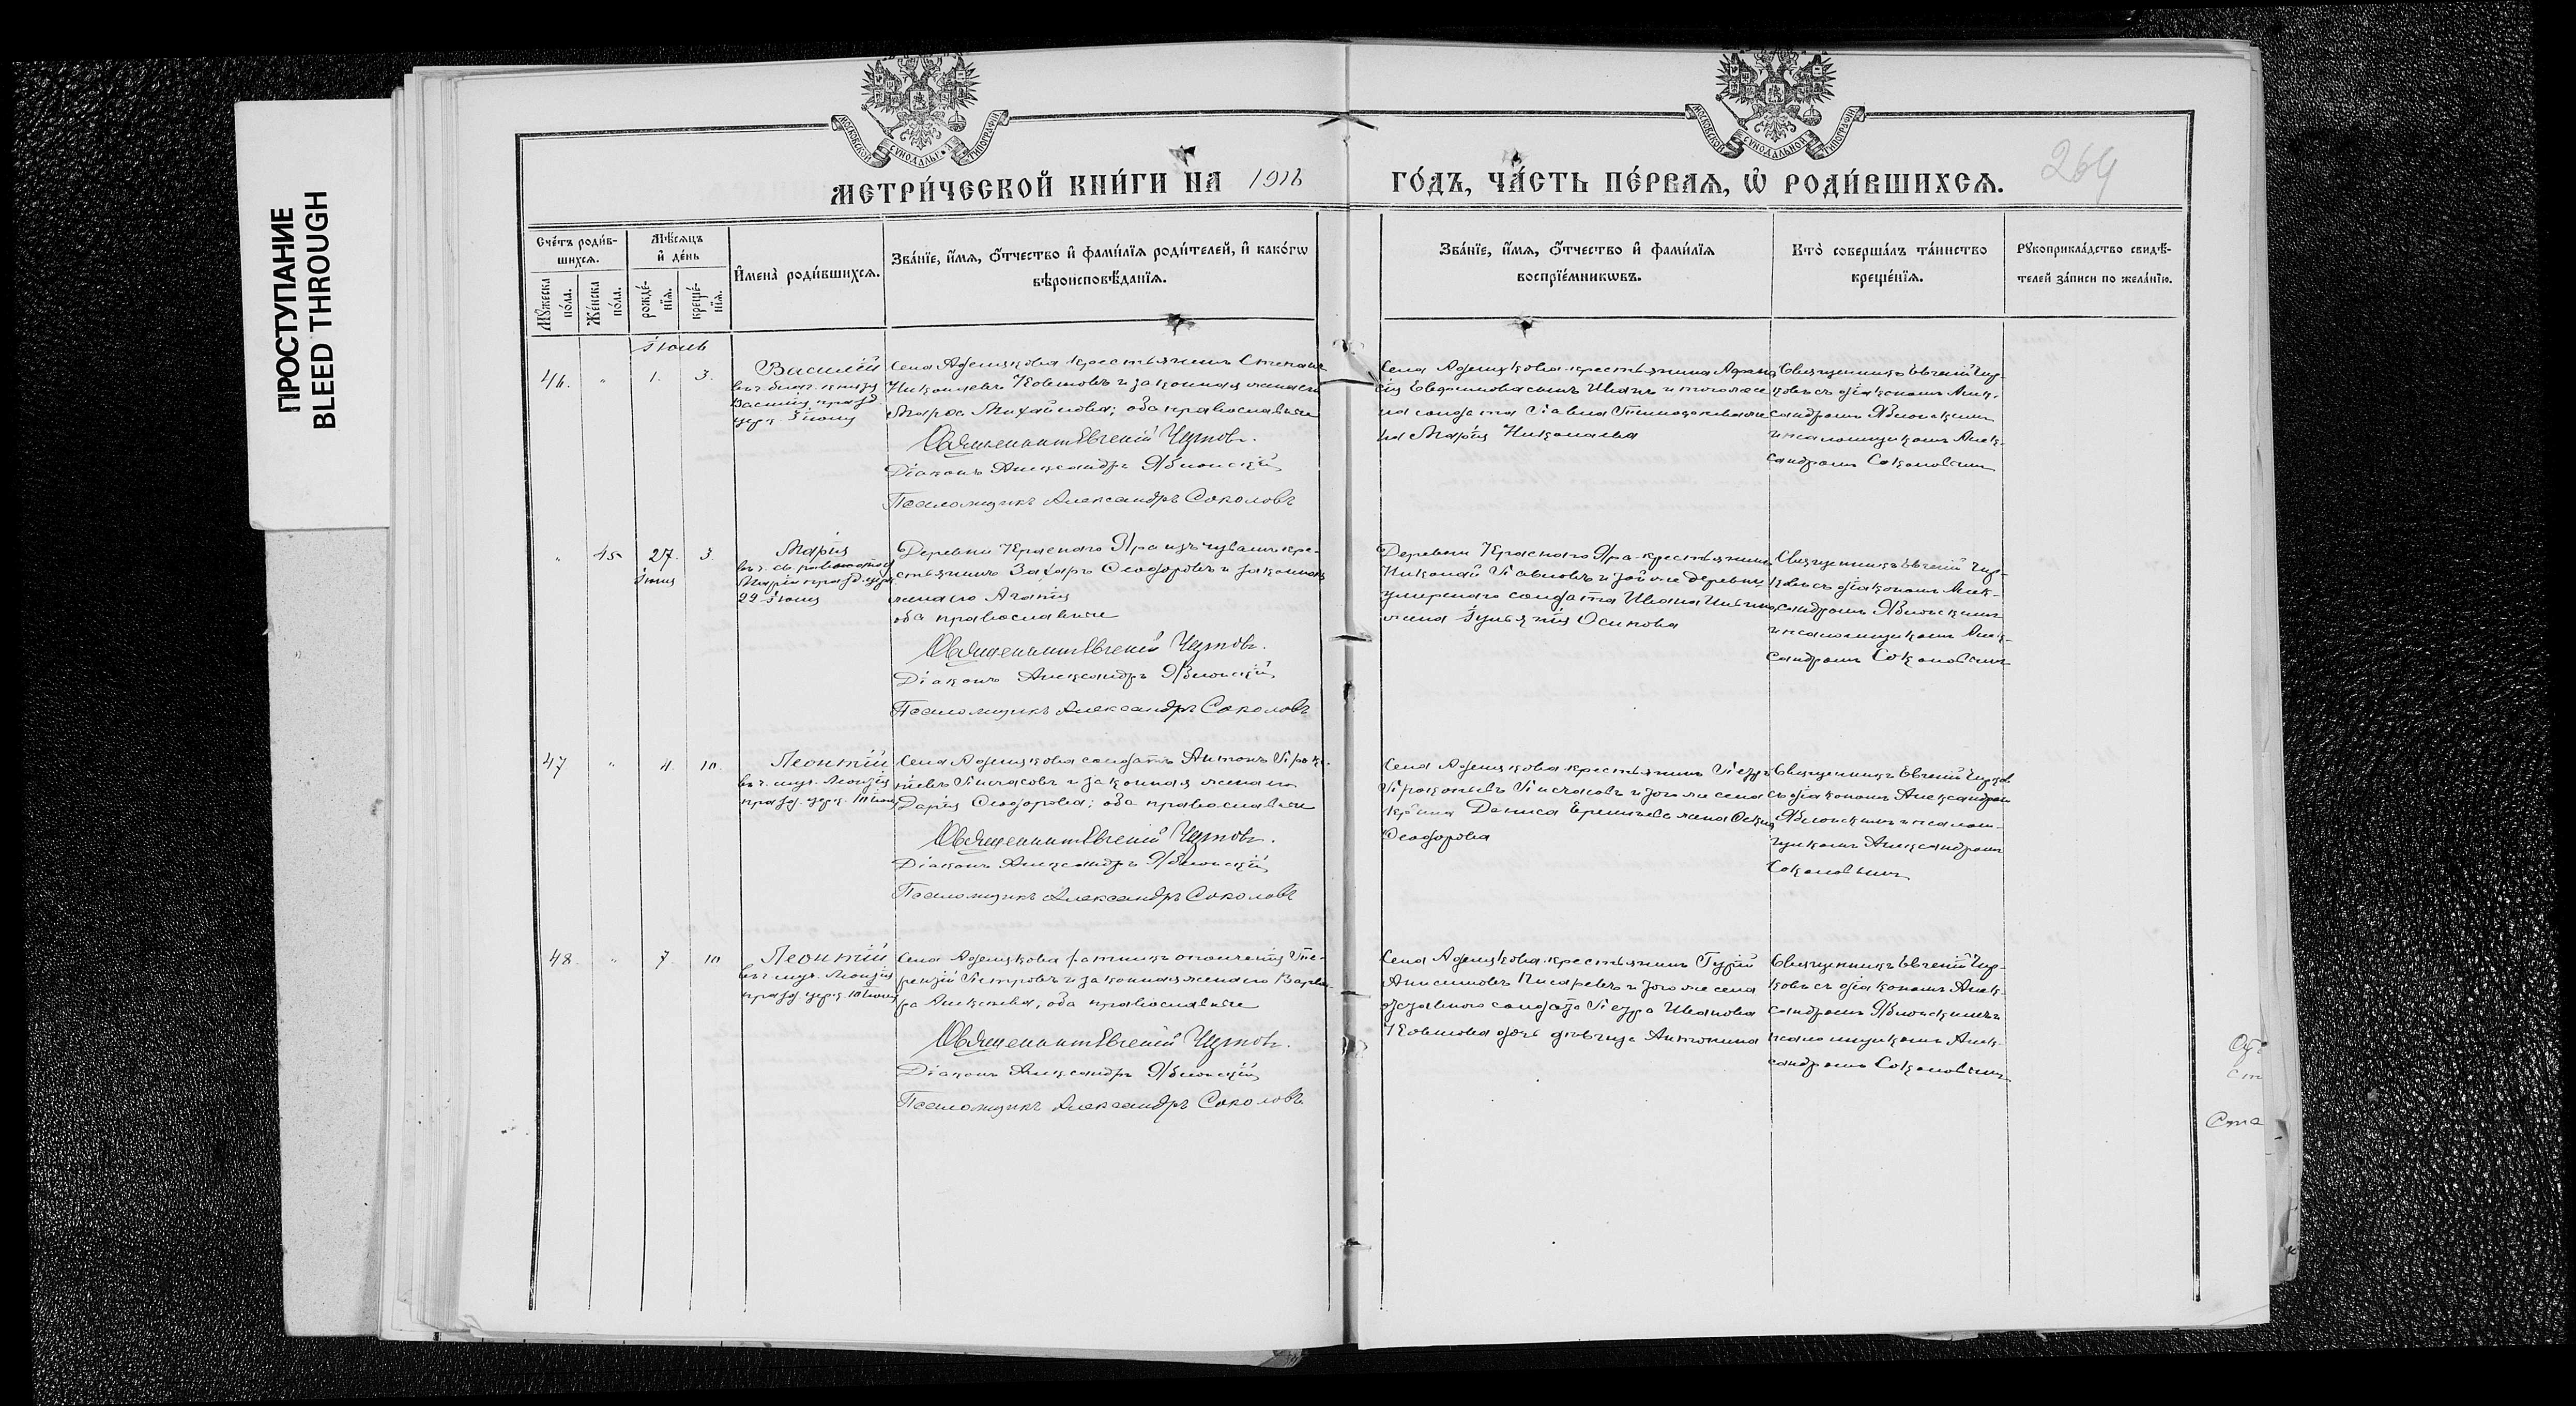 ПРОСТУПАНИЕ
BLEED THROUGH
МОСКОВСКОЙ СѴНОДАЛЬНОЙ ТИПОГРАФІИ
МОСКОВСКОЙ СѴНОДАЛЬНОЙ ТИПОГРАФІИ
МЕТРИ́ЧЕСКОЙ КНИ́ГИ НА 1916 ГО́ДЪ, ЧА́СТЬ ПЕ́РВАѦ, Ѡ҆ РОДИ́ВШИХСѦ.
264
Сче́тъ роди́в-
шихсѧ.
Мꙋ́жеска
по́ла.
Же́нска
по́ла.
Мѣ́сѧцъ
и҆ де́нь
рожде́-
нїѧ.
креще́-
нїѧ.
И҆мена̀ роди́вшихсѧ.
Зва́нїе, и҆́мѧ, ѻ҆́тчество и҆ фами́лїѧ роди́телей, и҆ како́гѡ
вѣроисповѣ́данїѧ.
Зва́нїе, и҆́мѧ, ѻ҆́тчество и҆ фами́лїѧ
воспрїе́мникѡвъ.
Кто̀ соверша́лъ та́инство
креще́нїѧ.
Рꙋкоприкла́дство свидѣ́-
телей за́писи по жела́нїю.
Іюль
46. " 1. 3.
Василій
въ ч. благ. князя
Василія празд.
церк 3 іюля
крестьянинъ Степанъ
Николаевъ Ковшовъ и законная жена его
Марѳа Михайлова; оба православные
Священникъ Евгеній Чирковъ.
Діаконъ Александръ Яблонскій
Псаломщикъ Александръ Соколовъ
Евдокимова сынъ Иванъ и того же се
ла солдата Павла
на Марія Николаева
Священникъ Евгеній Чир-
ковъ съ діакономъ Алек-
сандромъ Яблонскимъ
и псаломщикомъ Алек-
сандромъ Соколовымъ
" 45 27 3.
іюня
Марія
Маріи празд. церк
22 іюля
Деревни Краснаго Яра изъ чувашъ кре-
стьянинъ Захаръ Ѳеодоровъ и законная
жена его Агапія
оба православные
Священникъ Евгеній Чирковъ.
Діаконъ Александръ Яблонскій
Псаломщикъ Александръ Соколовъ
Деревни Краснаго Яра крестьянинъ
Николай Павловъ и той же деревни
умершаго солдата Ивана
жена Іуліанія Осипова
Священникъ Евгеній Чир-
ковъ съ діакономъ Алек-
сандромъ Яблонскимъ
и псаломщикомъ Алек-
сандромъ Соколовымъ
47 " 4. 10.
Леонтій
въ ч. муч. Леонтія
празд. церк. 10 іюля
солдатъ Антонъ Проко-
піевъ и законная жена его
Дарія Ѳеодорова; оба православные
Священникъ Евгеній Чирковъ.
Діаконъ Александръ Яблонскій
Псаломщикъ Александръ Соколовъ
крестьянинъ Петръ
Прокопьевъ и того же села
Дениса жена
Ѳеодорова
Священникъ Евгеній Чирковъ
съ діакономъ Александромъ
Яблонскимъ и псалом-
щикомъ Александромъ
Соколовымъ
48. " 7. 10
Леонтій
въ ч. муч. Леонтія
празд. церк 10 іюля
ратникъ ополченія Те-
рентій Петровъ и законная жена его Варва-
ра Алексѣева; оба православные
Священникъ Евгеній Чирковъ.
Діаконъ Александръ Яблонскій
Псаломщикъ Александръ Соколовъ
крестьянинъ Гурій
Анисимовъ Писаревъ и того же села
солдата Петра Иванова
Ковшова дочь дѣвица Антонина
Священникъ Евгеній Чир-
ковъ съ діакономъ Алек-
сандромъ Яблонскимъ и
псаломщикомъ Алек-
сандромъ Соколовымъ